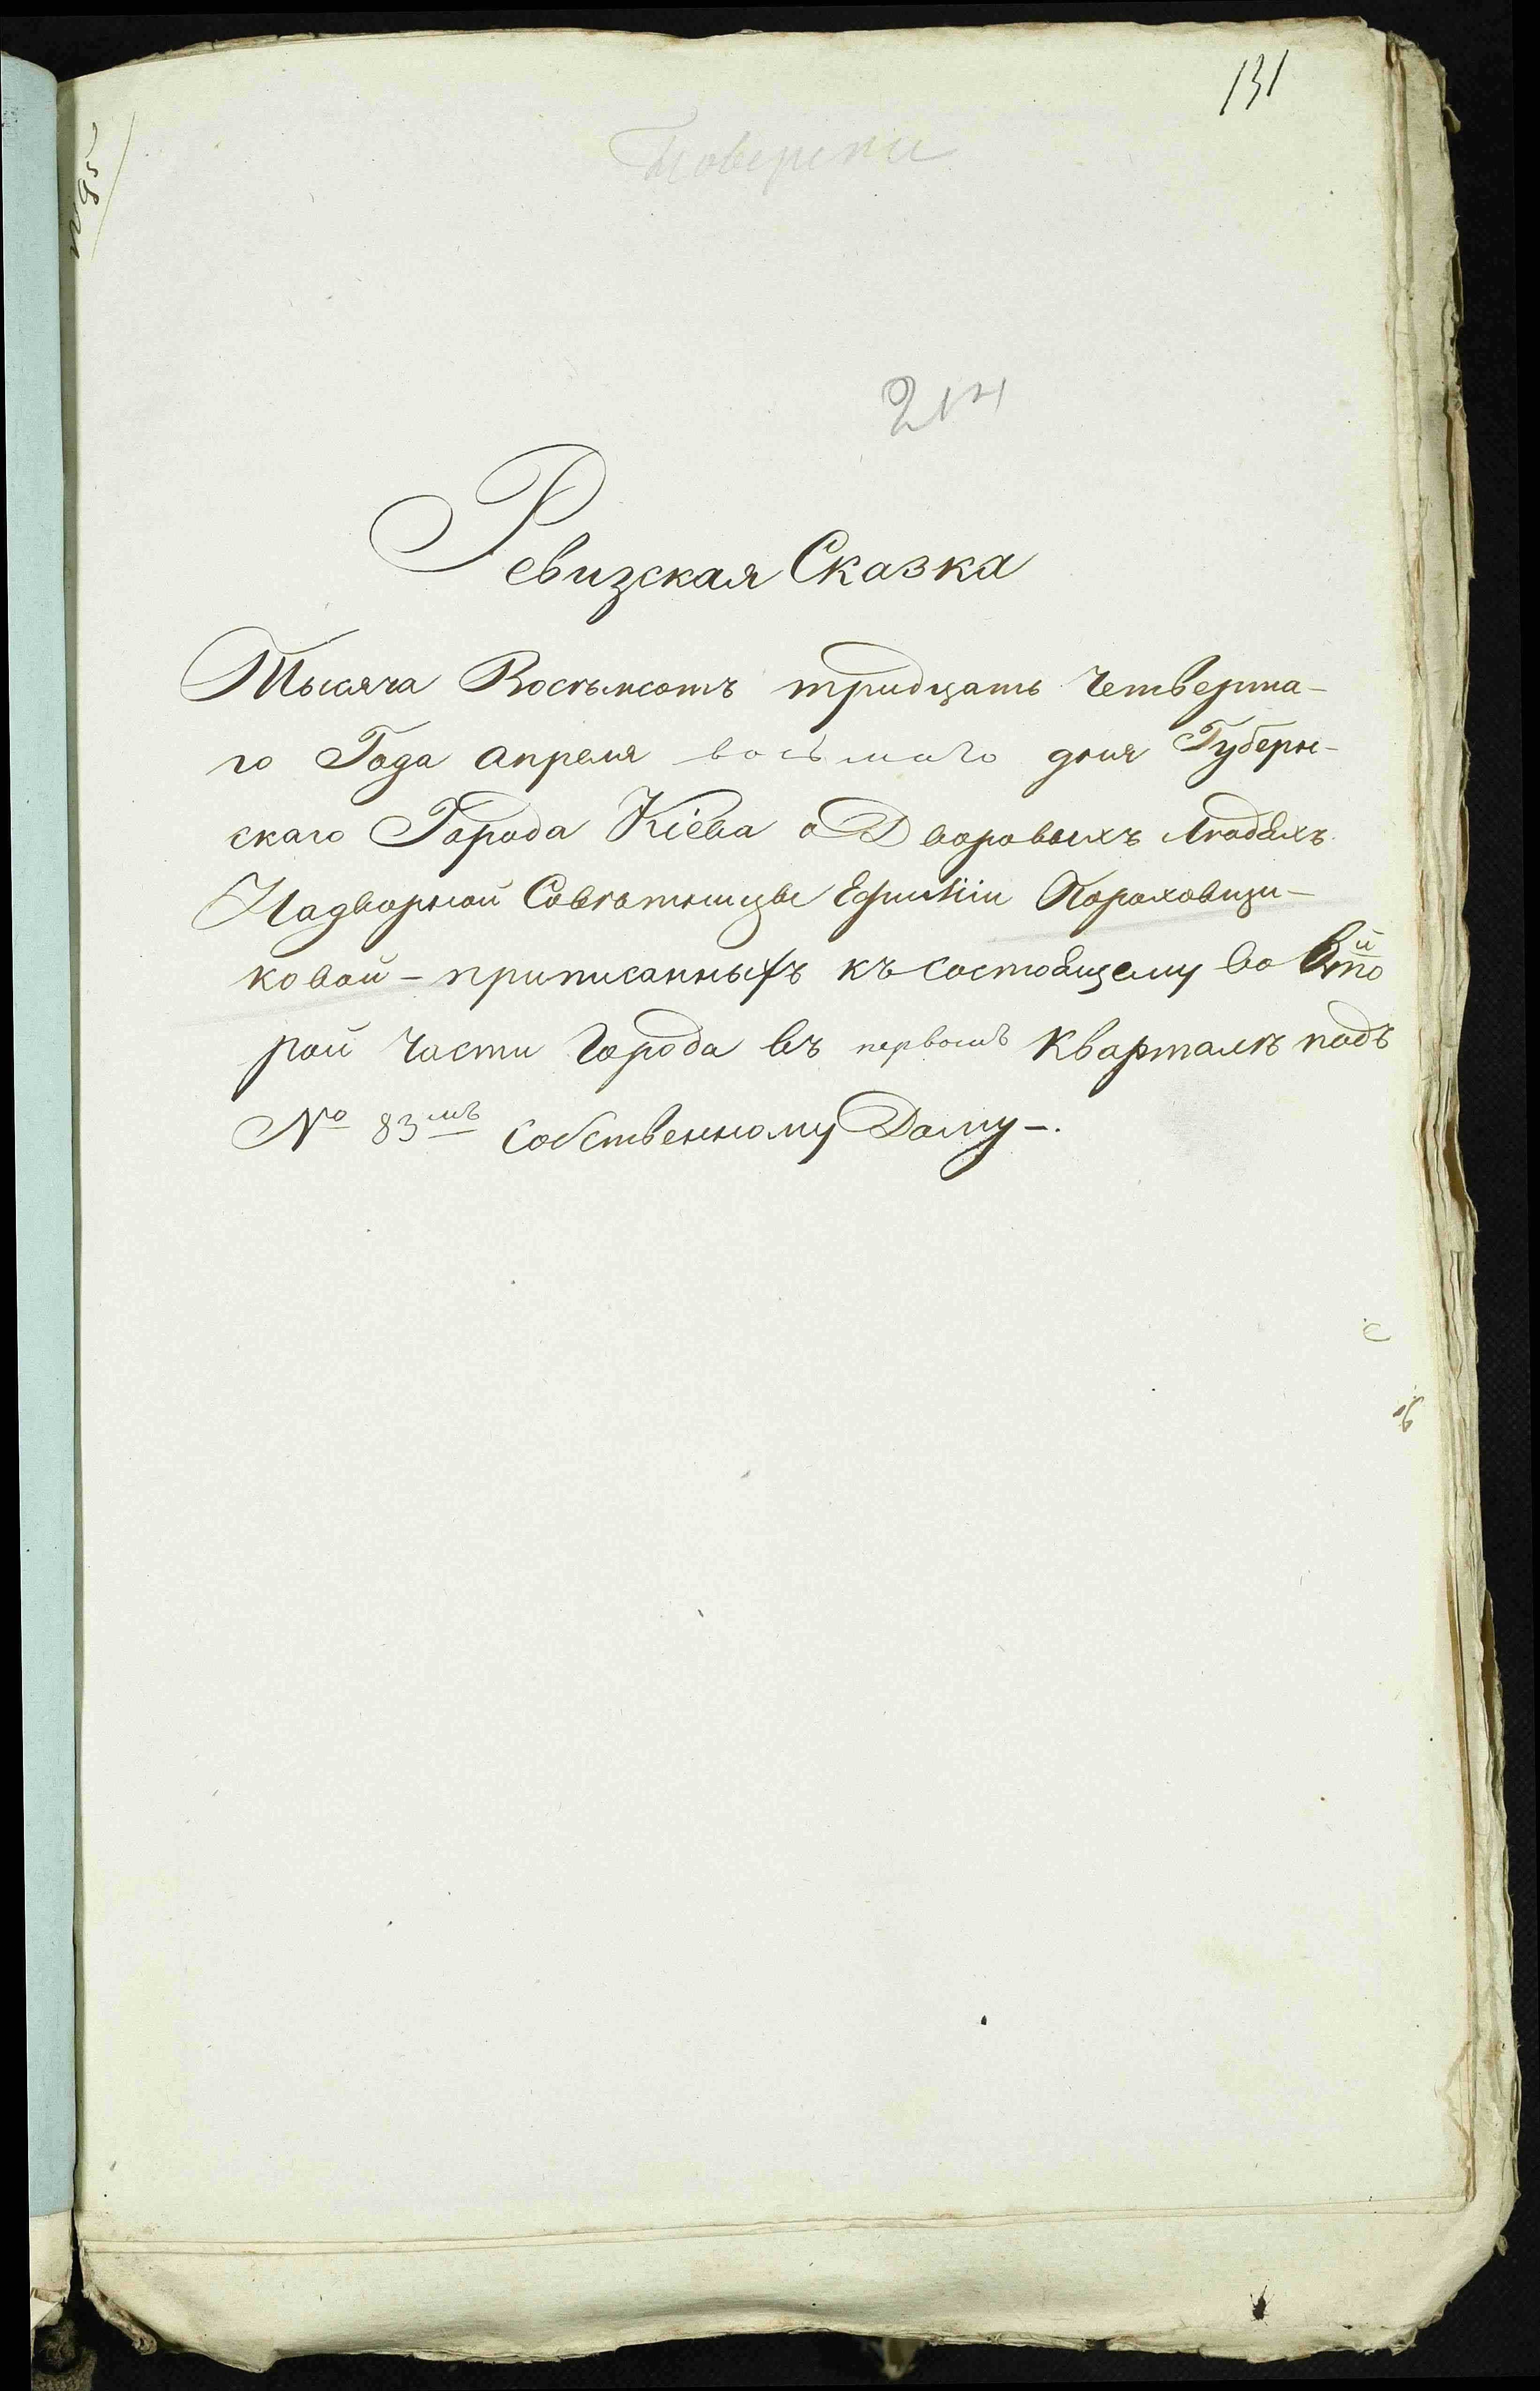 131
Поверени
Ревизская Сказка
Тысяча Восѣмсотъ тридцать Четверта-
го Года Апреля восьмаго дня Губерн-
скаго Города Кіева о Дворовыхъ Людяхъ
Надворной Совѣтницы Ефиміи Короховци-
ковой - приписанныхъ къ состоящему во Вто
рой Части Города въ первомъ Кварталѣ подъ
№ 83мъ Собственному Дому -.